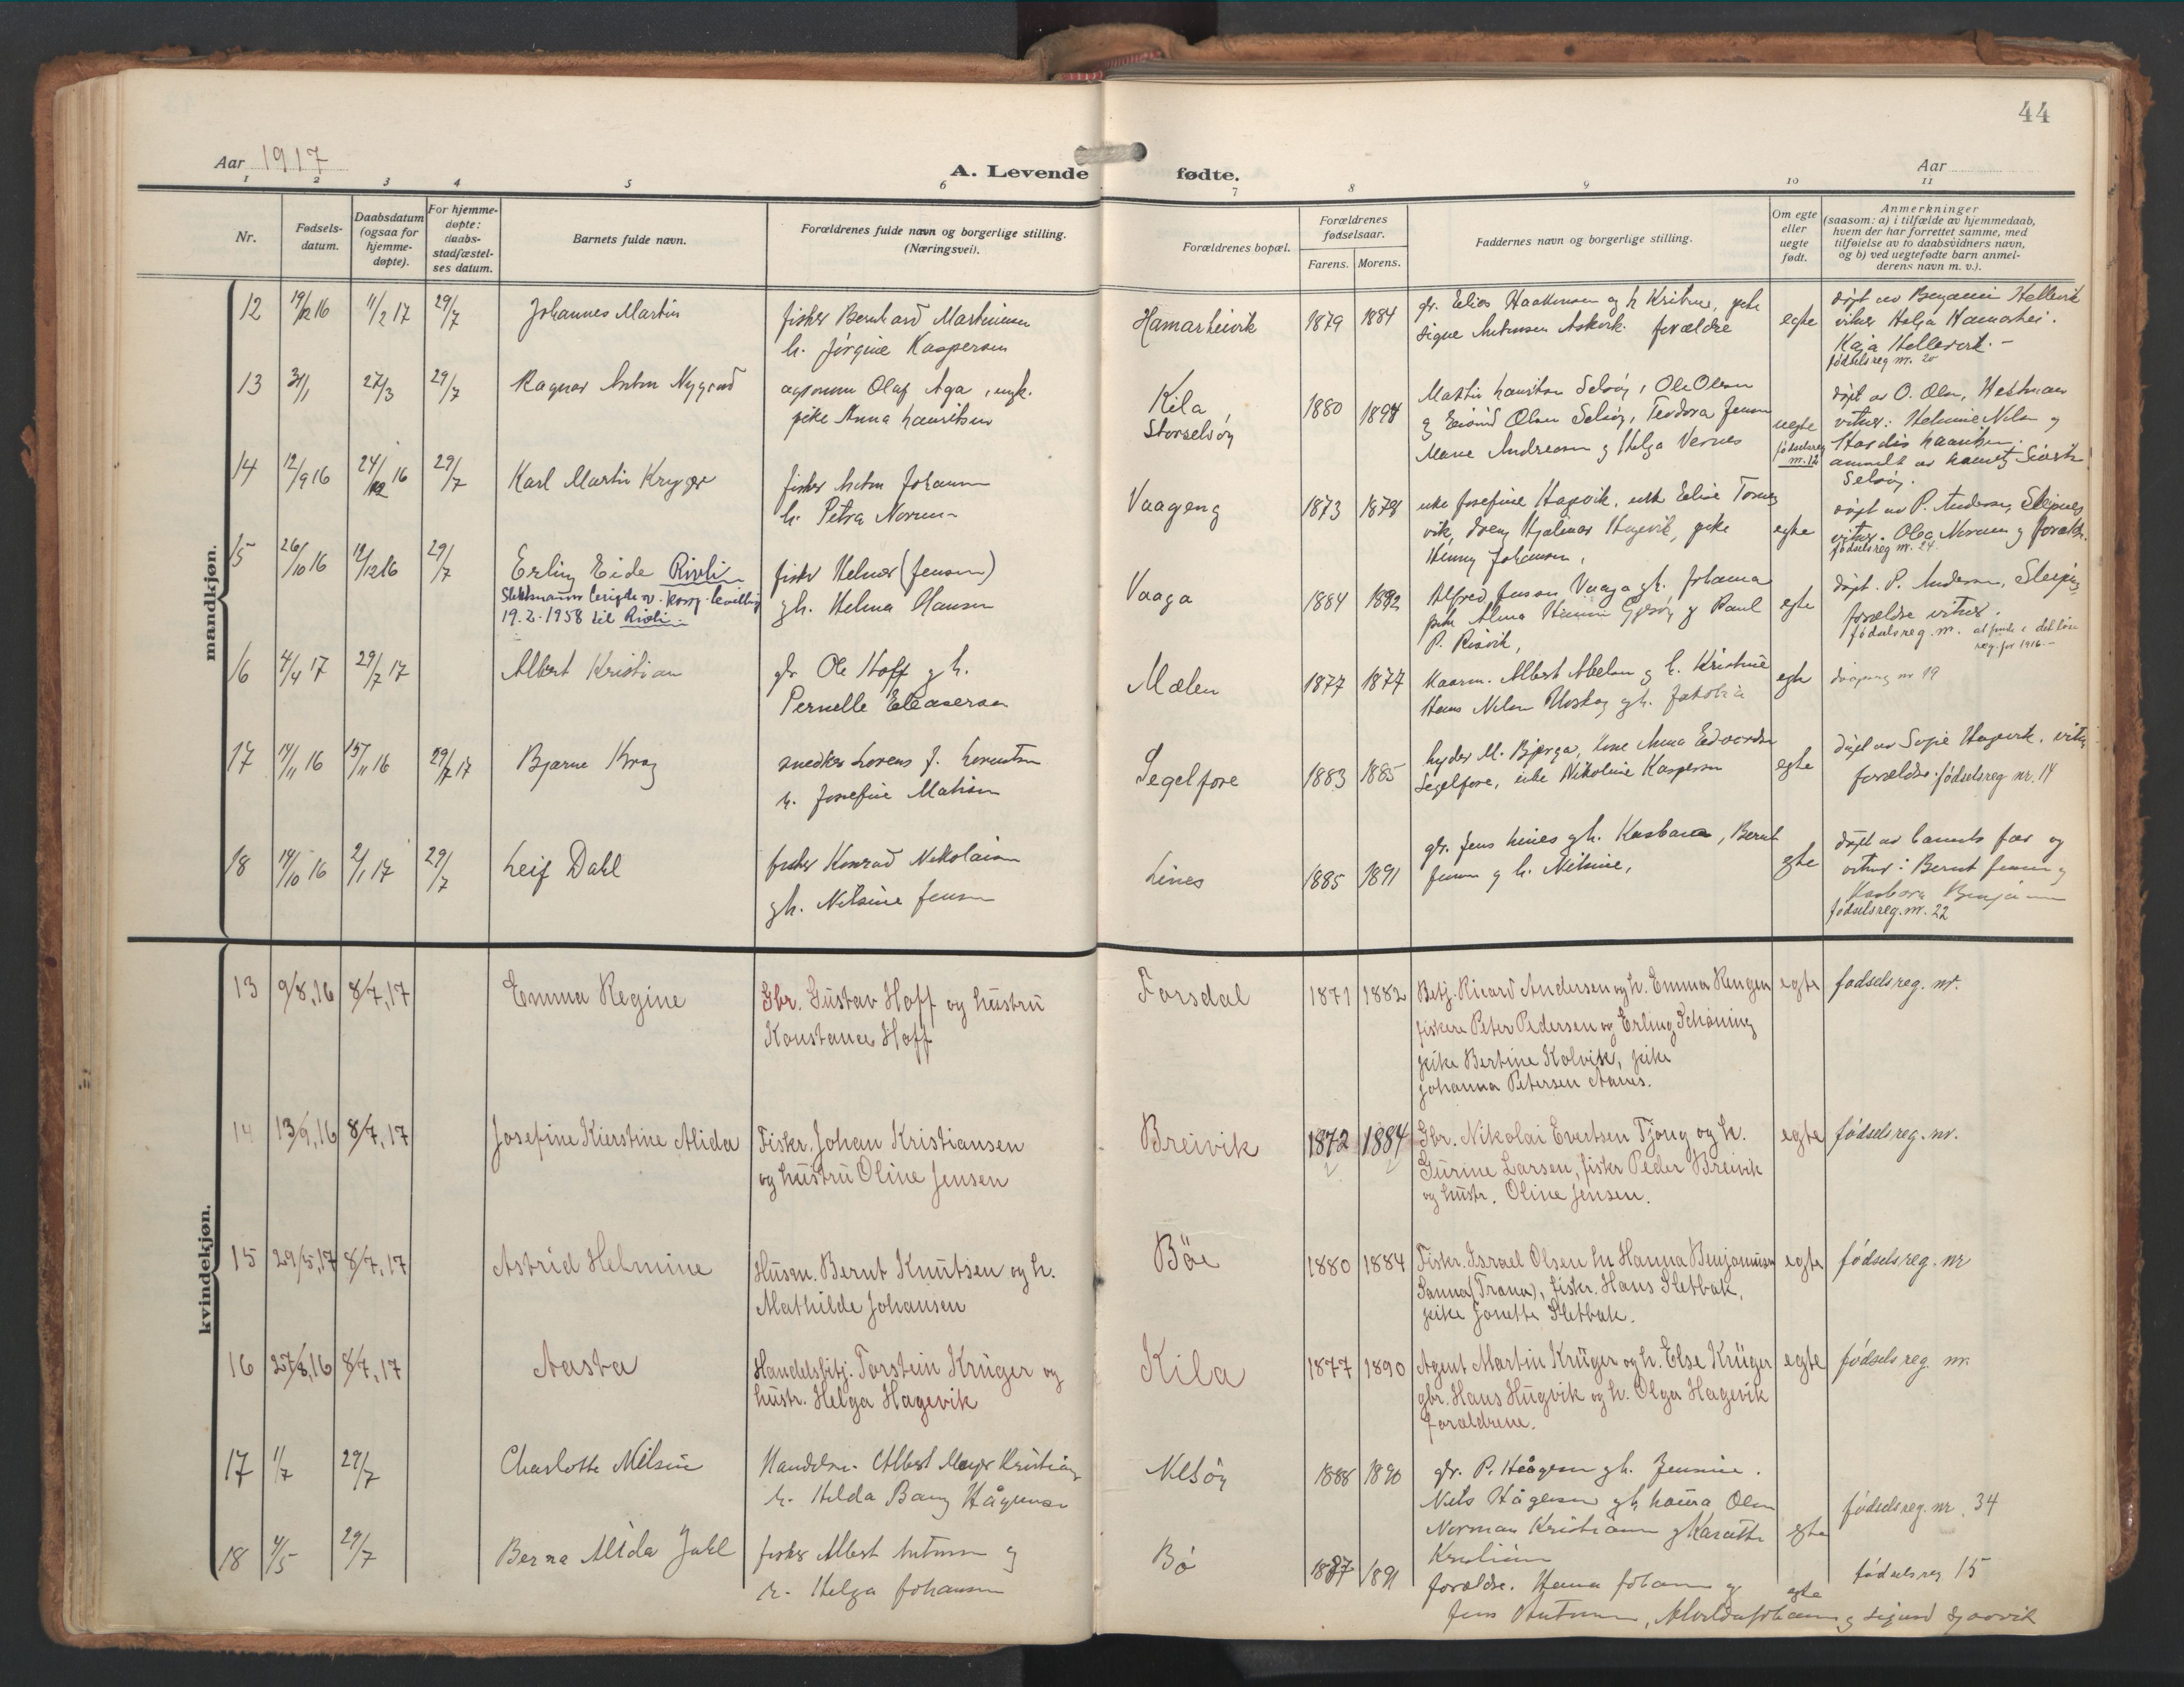 44
Aar 1917
A. Levende fødte.
Aar
1 2 3 4 5 6 7 8 9 10 11
Nr.
Fødsels-
datum.
Daabsdatum
(ogsaa for
hjemme-
døpte).
For hjemme-
døpte:
daabs-
stadfæstel-
ses datum.
Barnets fulde navn.
Forældrenes fulde navn og borgerlige stilling.
(Næringsvei).
Forældrenes bopæl.
Forældrenes
fødselsaar.
Farens. Morens.
Faddernes navn og borgerlige stilling.
Om egte
eller
uegte
født.
Anmerkninger
(saasom: a) i tilfælde av hjemmedaab,
hvem der har forrettet samme, med
tilføielse av to daabsvidners navn,
og b) ved uegtefødte barn anmel-
derens navn m. v.).
mandkjøn.
12 19/12 16 11/2 17 29/7 Johannes Martin
fisker Bernhard Martinusen
h. Jørgine Kaspersen
Hamarheivik 1879 1884
gbr. Elias Haakensen og h Kristine, pike
Signe Antonsen Askvik. forældre
egte
døpt av Benjamin Hellevik
vitner Helga Hamarhei.
Kaja Hellevik. -
fødselsreg nr. 20
13 31/1 27/3 29/7 Ragnar Anton Nygaard
agronom Olaf Aga, ungk.
pike Anna Lauritsen
Kila,
Storselsøy
1880 1894
Martin Lauritsen Selsøy, Ole Olsen
g Eivind Olsen Selsøy, Teodora Jensen
Marie Andreasen g Helga Vernes
uegte
fødselsreg
nr. 12
døpt av O. Olsen, Hestmoen
vitner: Helmine Nilsen og
anmelt av
Selsøy.
14 12/9 16 24/12 16 29/7 Karl Martin Kryger
fisker Anton Johansen
h. Petra Norum
Vaageng 1873 1878
enke Josefine Hagevik, enk Eline Tones
vik, dreng Hjalmar Hagevik, pike
Henny Johansen,
egte
døpt av P. Andersen, Sleipnes
vitner. Olea Norum g forældr.
fødselsreg nr. 24.
15 26/10 16 12/12 16 29/7 Erling Eide Rivli
Slektsnavn ifølge kong. bevilling
19.2.1958 til Rivli
fisker Helmer (Jensen)
gh. Helma Hansen
Vaaga 1884 1892
Alfred Jensen Vaaga gh. Johanna
pike Alma Gjersøy g Paul
P. Risvik,
egte
døpt. P. Andersen, Sleipnes
forældre vitner.
fødselsreg. nr. at finde i det løse
reg. for 1916.-
16 4/4 17 29/7 17 Albert Kristian
gbr Ole Hoff g h.
Pernelle Eleasersen
Mælen 1877 1877
Kaarm. Albert Abelsen g h. Kristine
Hans Nilsen gh. Jakobia
egte
nr 19
17 14/11 16 15/11 16 29/7 17 Bjarne Krog
snedker Lorens J. Lorentsen
h. Josefine Mathisen
Segelfore 1883 1885
M. Bjerga, Kone Anna Edvardsen
Segelfore, enke Nikoline Kaspersen
egte
døpt av Sofie Hagevik, vitner
forældre. fødselsreg nr. 14
18 14/10 16 2/1 17 29/7 Leif Dahl
fisker Konrad Nikolaisen
gh. Nilsine Jensen
Lines 1885 1891
gbr. Jens Lines gh. Kasbara, Bernt
Jensen g h. Nilsine,
egte
døpt av barnets far og
vitner: Bernt Jensen g
Kasbara Benjamin
fødselsreg. nr. 22
kvindekjøn.
13 9/8,16 8/7,17 Emma Regine
Gbr. Gustav Hoff og hustru
Konstance Hoff
Forsdal 1871 1882
Betj. Ricard Andersen og h. Emma Rengen
fiskere Peter Pedersen og Erling Schøning
pike Bertine Kolvik, pike
Johanna Petersen Aanes.
egte fødselsreg. nr.
14 13/9,16 8/7,17 Josefine Kierstine Alida
Fisker. Johan Kristiansen
og hustru Oline Jensen
Breivik 1872 1884
Gbr. Nikolai Evertsen Tjong og h.
Gurine Larsen, fisker Peder Breivik
og hustr. Oline Jensen.
egte fødselsreg. nr.
15 29/5,17 8/7,17 Astrid Helmine
Husm. Bernt Knutsen og h.
Mathilde Johansen
Böe 1880 1884
Fisker. Israel Olsen h. Hanna Benjaminsen
Sanna (Træna), fisker. Hans Sletbak,
pike Jonette Sletbak.
egte fødselsreg. nr
16 27/8,16 8/7,17 Aasta
Handelsbetj. Torstein Krüger og
hustr. Helga Hagevik
Kila 1877 1890
Agent Martin Krüger og h. Else Krüger
gbr. Hans Hugvik og h. Olga Hagevik
Forældrene.
egte fødselsreg. nr.
17 1/7 29/7 Charlotte Nilsine
Handelsm. Albert Meyer Kristians
h. Hilda Bang Hågensen
Nesøy 1888 1890
gbr. P. Hågensen gh. Jensine.
Nils Hågensen gh Laura Olsen
Norman Kristiansen g Karette
Kristiansen
egte
fødselsreg. nr. 34
18 4/5 29/7 Berna Alida Jahl
fisker Albert Antonsen g
h. Helga Johansen
Bø 1887 1891
forældre. Hanna Johansen g
Jens Antonsen, Alvilda Johansen g Sigurd
egte
fødselsreg 15